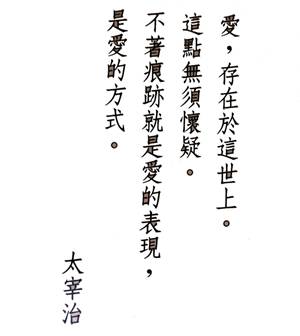 愛，存在於這世上。
這點無須懷疑。
不著痕跡就是愛的表現，
是愛的方式。
太宰治